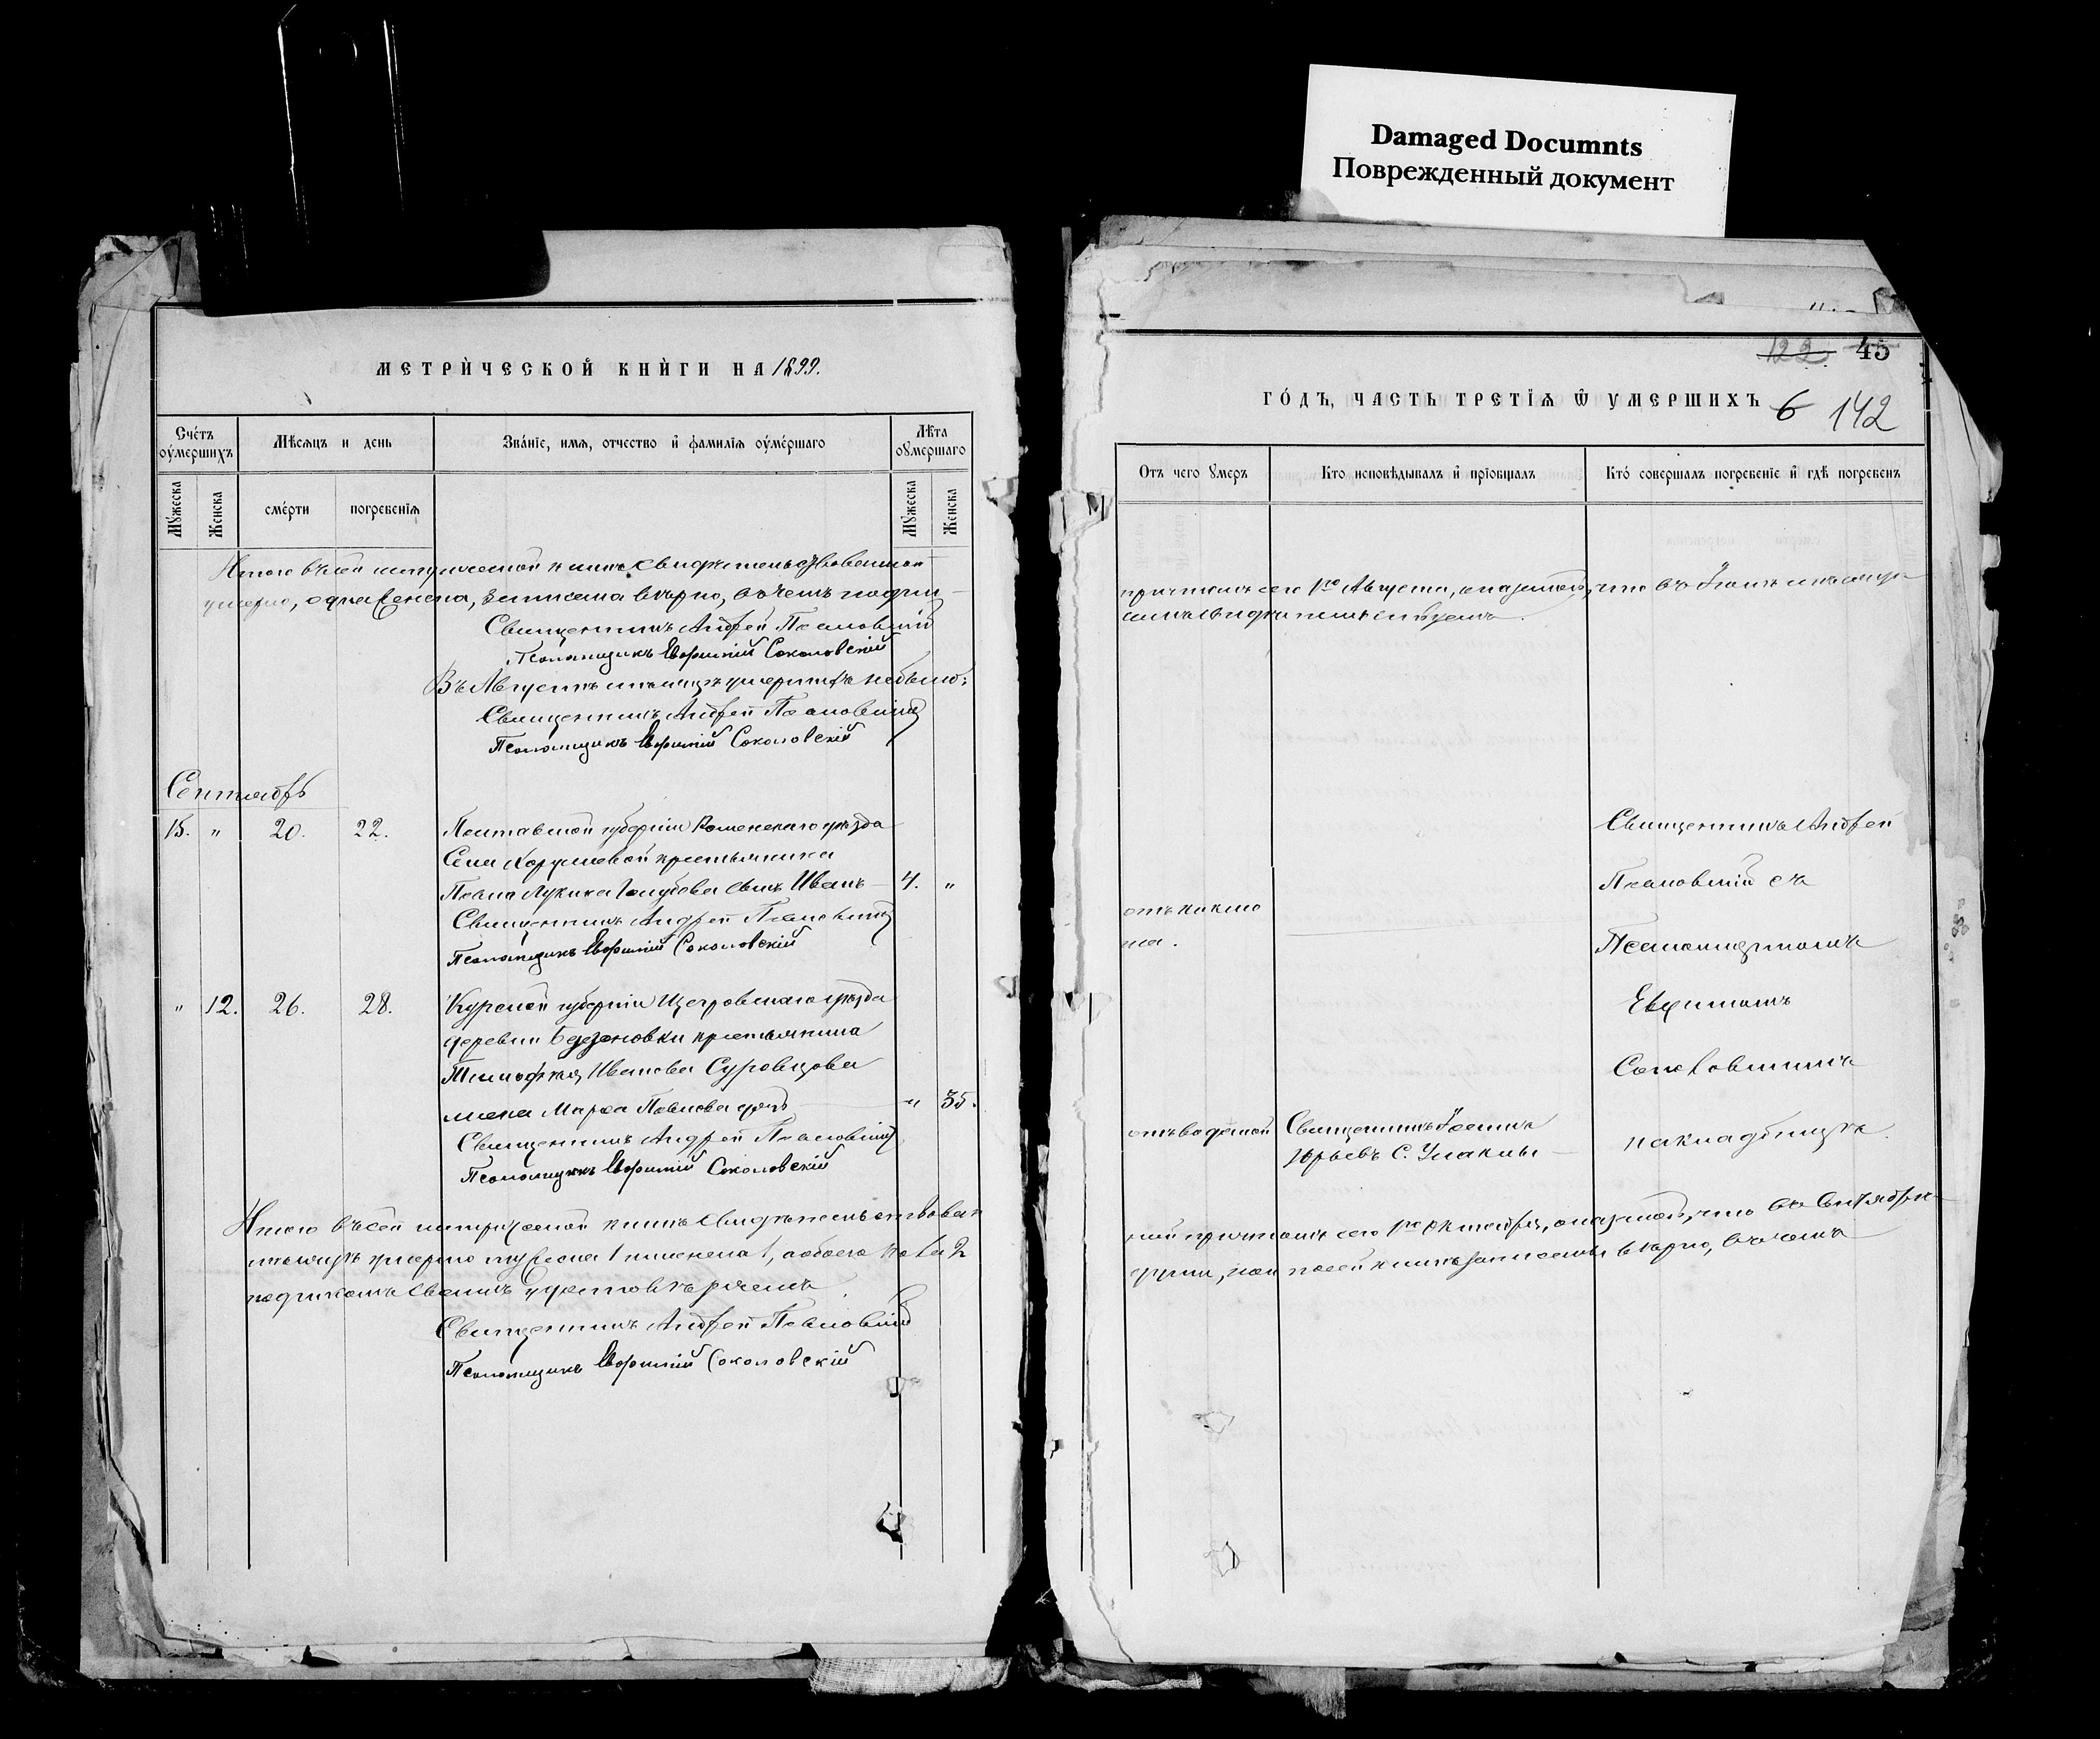 Damaged Documnts
Поврежденный документ
МЕТРИ́ЧЕСКОЙ КНИ́ГИ НА 1899.
Сче́тъ оу́мершихъ
Мѣсяцъ и день
Зва́нїе, имя, отчество и фамилїя оуме́ршаго
Лѣта оумершаго
Му́жеска
Женска
сме́рти
погребенїя
Му́жеска
Женска
Итого въ сей метрической книге свидетельствованной
умерло, одна женска, записана верно, в чемъ подпи
Священникъ Андрей
Псаломщикъ Евфимій Соколовскій
Въ Августе месяце умершихъ небыло:
Священникъ Андрей
Псаломщикъ Евфимій Соколовскій
Сентябрь
15. " 20. 22. Полтавской губерніи Роменскаго уѣзда
Села крестьянина
сынъ Иванъ 4. "
Священникъ Андрей
Псаломщикъ Евфимій Соколовскій
" 12. 26. 28. Курской губерніи Щегровскаго уѣзда
деревни крестьянина
Тимофея Иванова Суровцова
жена Марфа Павлова дочь " 35.
Священникъ Андрей
Псаломщикъ Евфимій Соколовскій
Итого въ сей метрической книгѣ свидѣтельствован
мѣсяцѣ умерло мужеска 1 и женска 1, обоего пола 2
подписомъ своимъ удостовѣряемъ
Священникъ Андрей
Псаломщикъ Евфимій Соколовскій
122 45
ГО́ДЪ, ЧАСТЬ ТРЕТЇЯ Ѿ УМЕРШИХЪ 6 142
Отъ чего умеръ
Кто исповѣдывалъ и прїобщалъ
Кто́ совершалъ погребенїе и гдѣ погребенъ
причтомъ сего 1го Августа, оказалось, что въ Іюлѣ месяце
симъ свидетельствуемъ.
Священникъ Андрей
съ
Псаломщикомъ
Евфиміемъ
Соколовскимъ
на кладбищѣ.
отъ водяной Священникъ Іоаннъ
Юрьевъ С.
ной причтомъ сего 1го Октября, оказалось, что въ Сентябрѣ
души, кои по сей книгѣ записаны вѣрно, въ чемъ